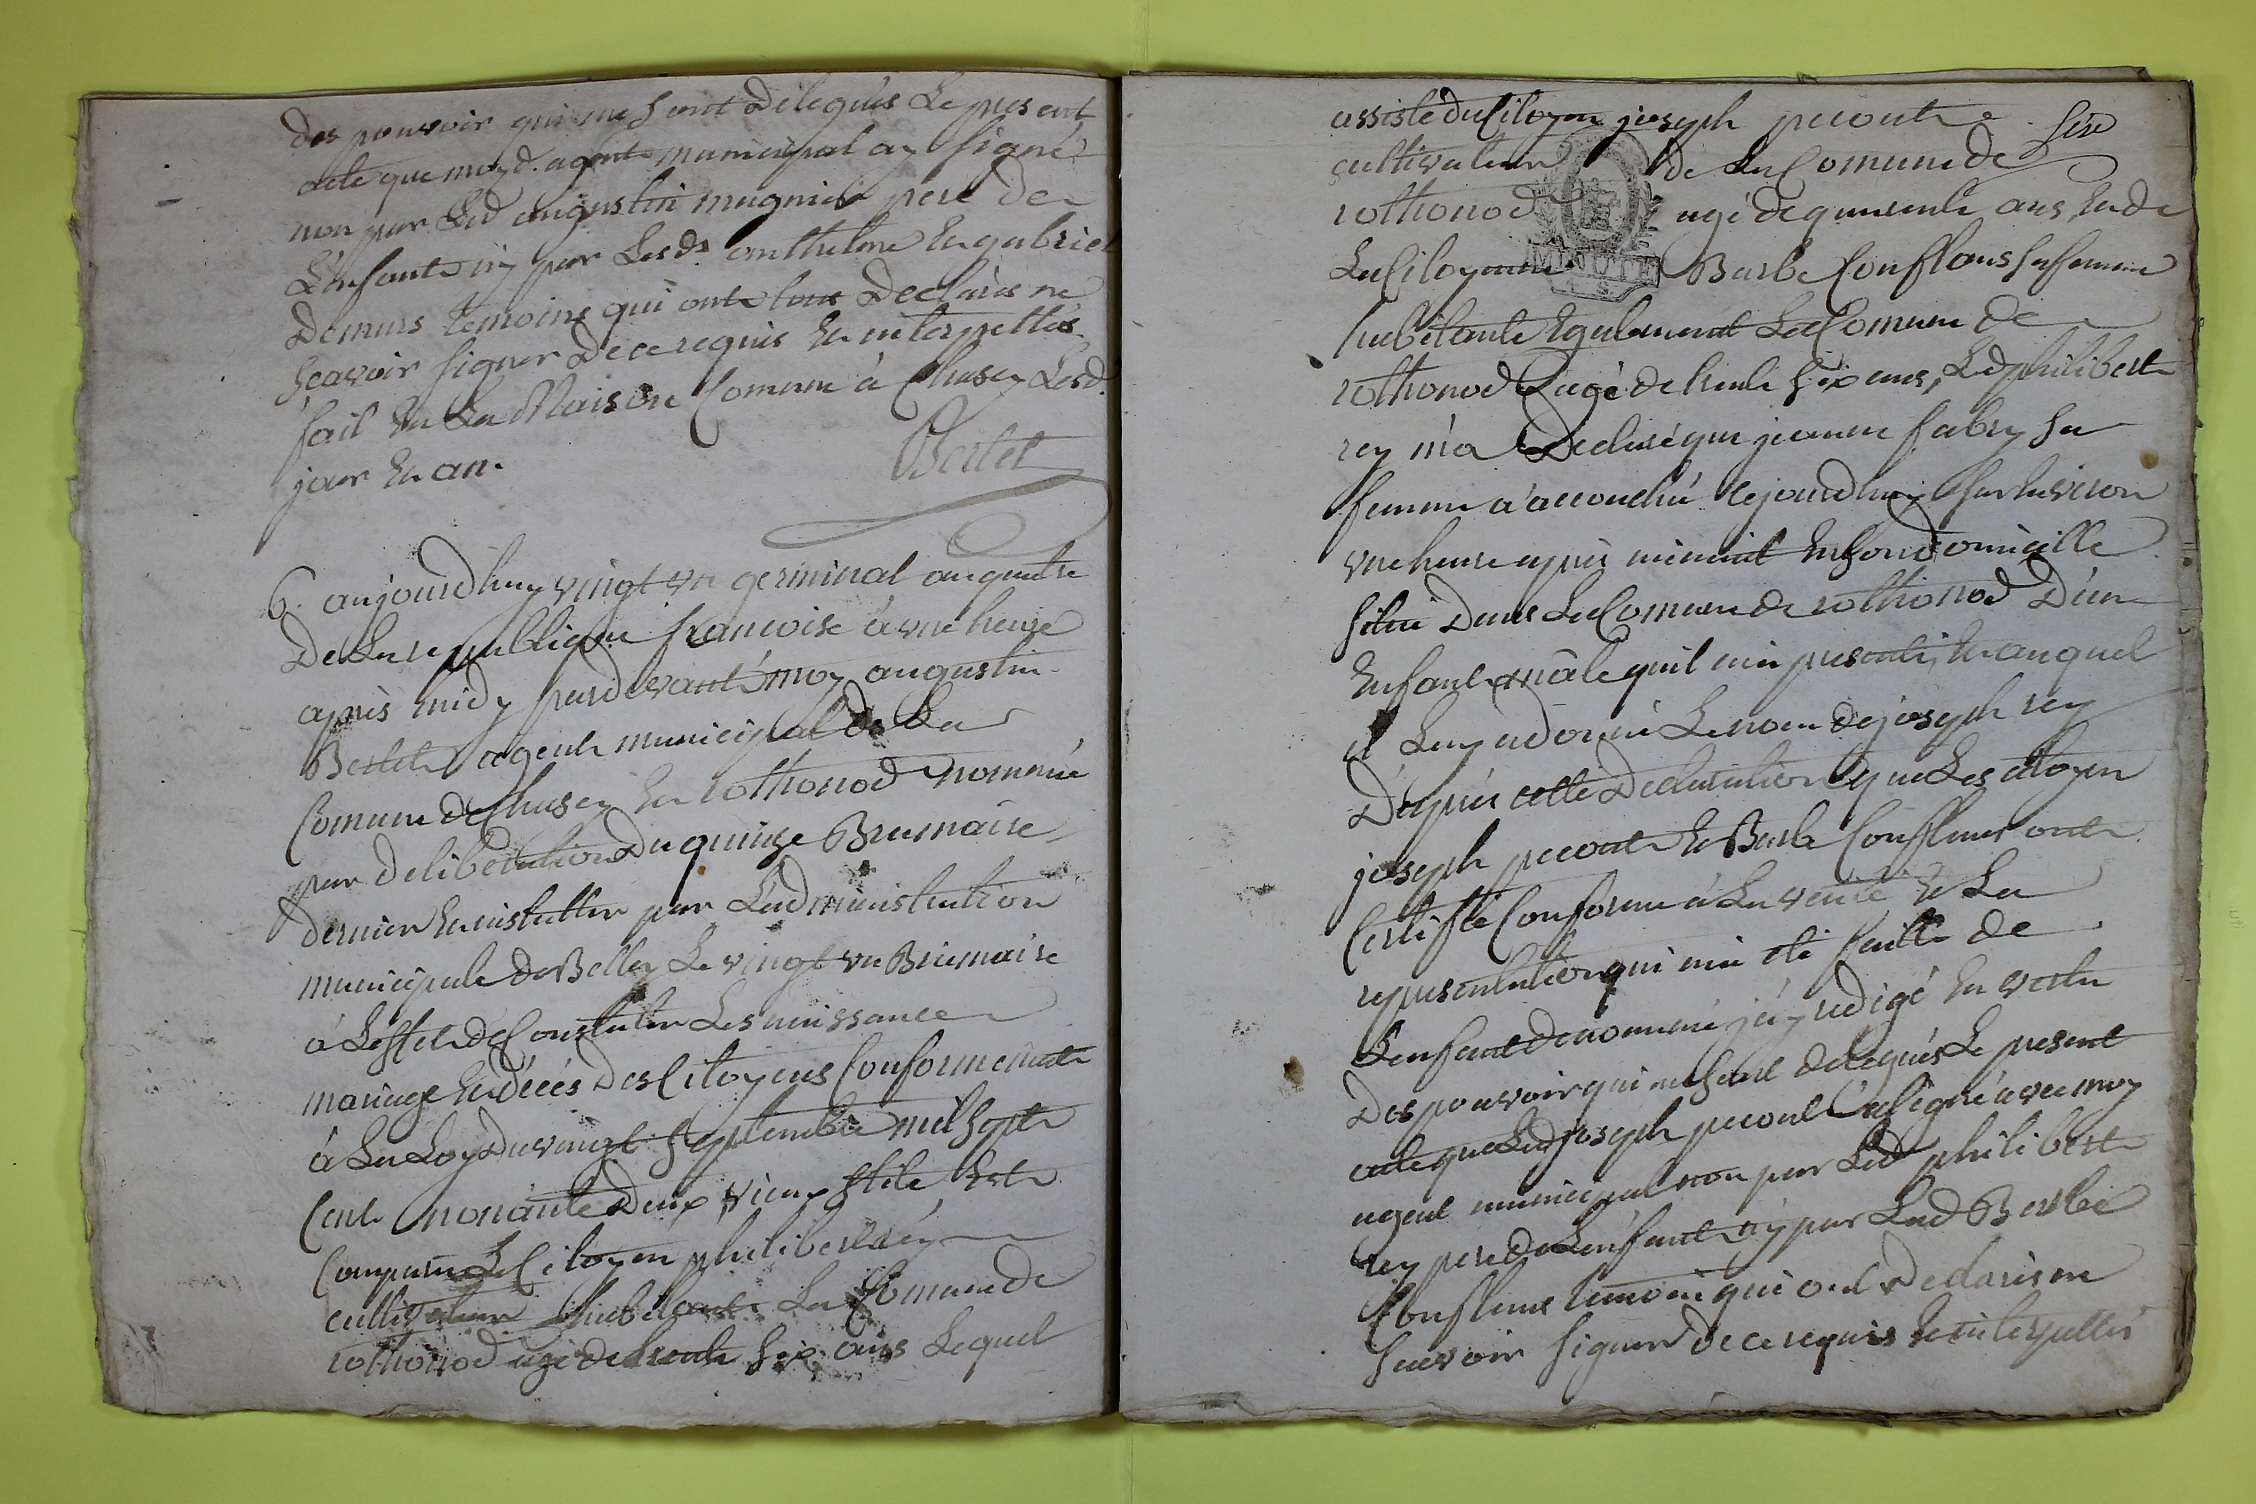 des pouvoir qui me sont delegués Le present
acte que moyd. agent municipal ay signé
non par Led augustin mugnier pere de
L'enfant ny par Lesds anthelme Et gabriel
Demurs temoins qui ont tous Déclarés ne
sçavoir signer De ce requis Et interpellés
fait En La Maison Comune à Chasey Lesd.
jour Et an.
Bertet
6. aujourdhuy vingt un germinal an quatre
De La republique françoise à une heure
après midy pardevant moy augustin
Bertet agent municipal de La
Comune de Chasey Et rothonod nommé
par deliberation Du quinze Brumaire
dernier Et installer par L'administration
municipale de Belley Le vingt un Brumaire
à Leffet de Constater Les naissance
mariage Et décés Des Citoyens Conformement
à La Loy Du vingt Septembre mil Sept
Cent nonante Deux vieux Stile Est
Comparu Le Citoyen philibert rey
cultivateur habitant La Comune de
rothonod agé de trente Six ans Lequel
assisté du Citoyen joseph pecoult
cultivateur de La Comune de
rothonod agé de quarente ans Et de
MINUTE
La Citoyenne Barbe Conflans Sa femme
habitante Egalement La Comune de
rothonod agé de trente Six ans, Led philibert
rey m'a Declaré que jeanne fabry Sa
femme a accouché cejourdhuy Sur Environ
une heure après minuit En Son domicille
Situé Dans La Comune de rothonod D'un
Enfant mâle quil m'a presenté, Et auquel
il Luy a donné Le nom de joseph rey
D'après cette Declaration que Les citoyen
joseph pecoult Et Barbe Conflans ont
Certifié Conforme à La verité Et La
representation qui m'a été faitte de
L'enfant denommé j'ay redigé En vertu
Des pouvoir qui me sont delegués Le present
acte que Led joseph pecoult a signé avec moy
agent municipal non par Led philibert
rey pere de L'enfant ny par Lad Barbe
Conflans temoin qui ont declarés ne
Sçavoir Signer de ce requis Et interpellés